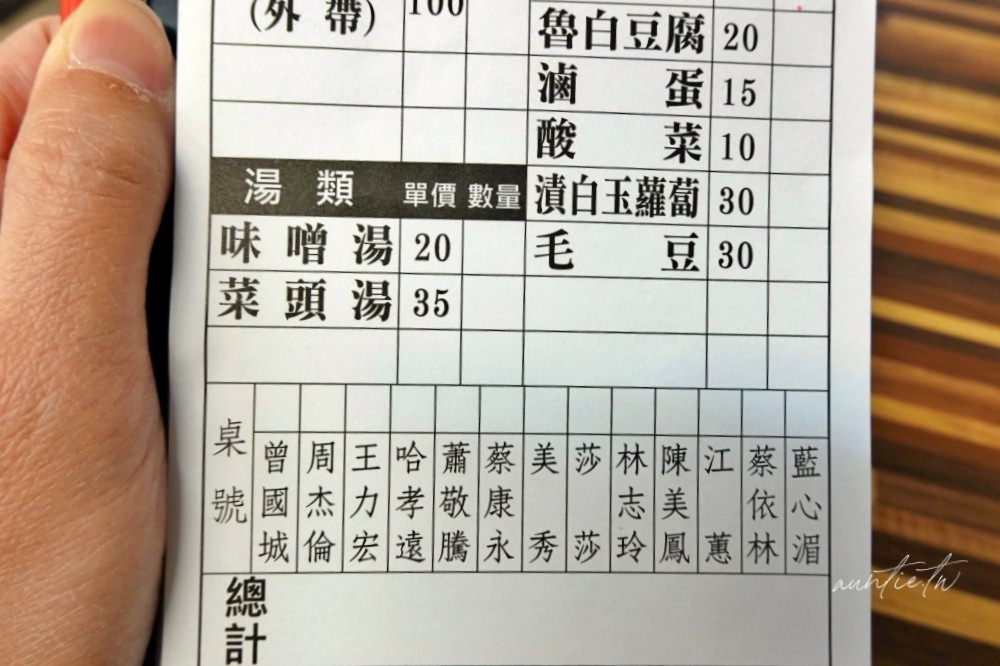 (外帶) 100
魯白豆腐 20
滷蛋 15
酸菜 10
漬白玉蘿蔔 30
毛豆 30
湯類 單價 數量
味噌湯 20
菜頭湯 35
桌號
曾國城
周杰倫
王力宏
哈孝遠
蕭敬騰
蔡康永
美秀
莎莎
林志玲
陳美鳳
江蕙
蔡依林
藍心湄
總計
auntie.tw